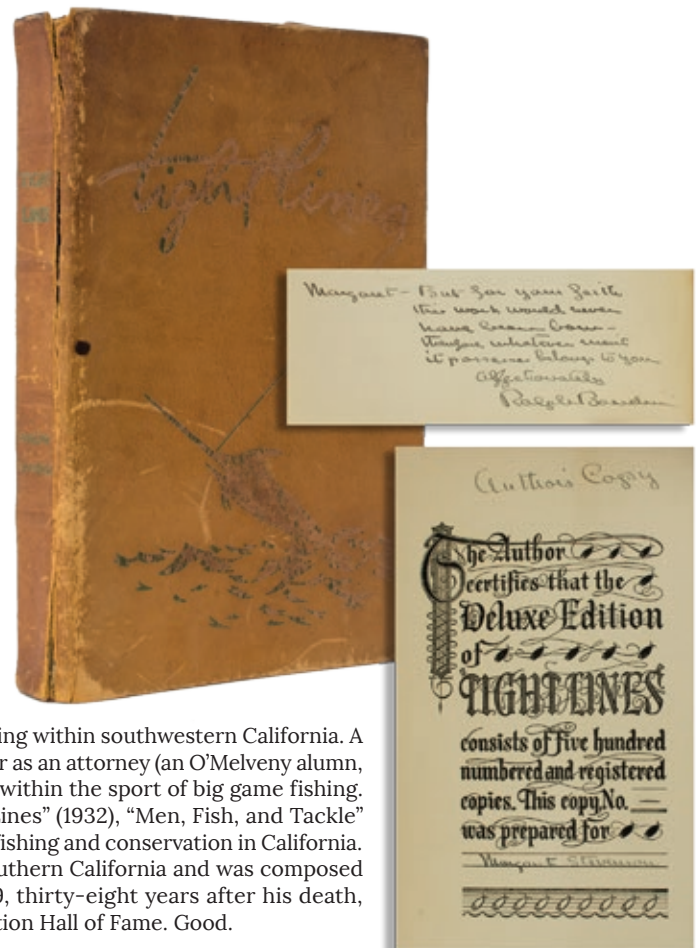 Tight Lines
Margaret – But for your faith
this work would never
have been born –
therefore whatever merit
it possesses belongs to you
Affectionately
Ralph Bandini
Author's Copy
The Author
certifies that the
Deluxe Edition
of
TIGHT LINES
consists of five hundred
numbered and registered
copies. This copy No.
was prepared for
Margaret Stevenson
ing within southwestern California. A
r as an attorney (an O’Melveny alumn,
within the sport of big game fishing.
Lines” (1932), “Men, Fish, and Tackle”
fishing and conservation in California.
uthern California and was composed
9, thirty-eight years after his death,
tion Hall of Fame. Good.